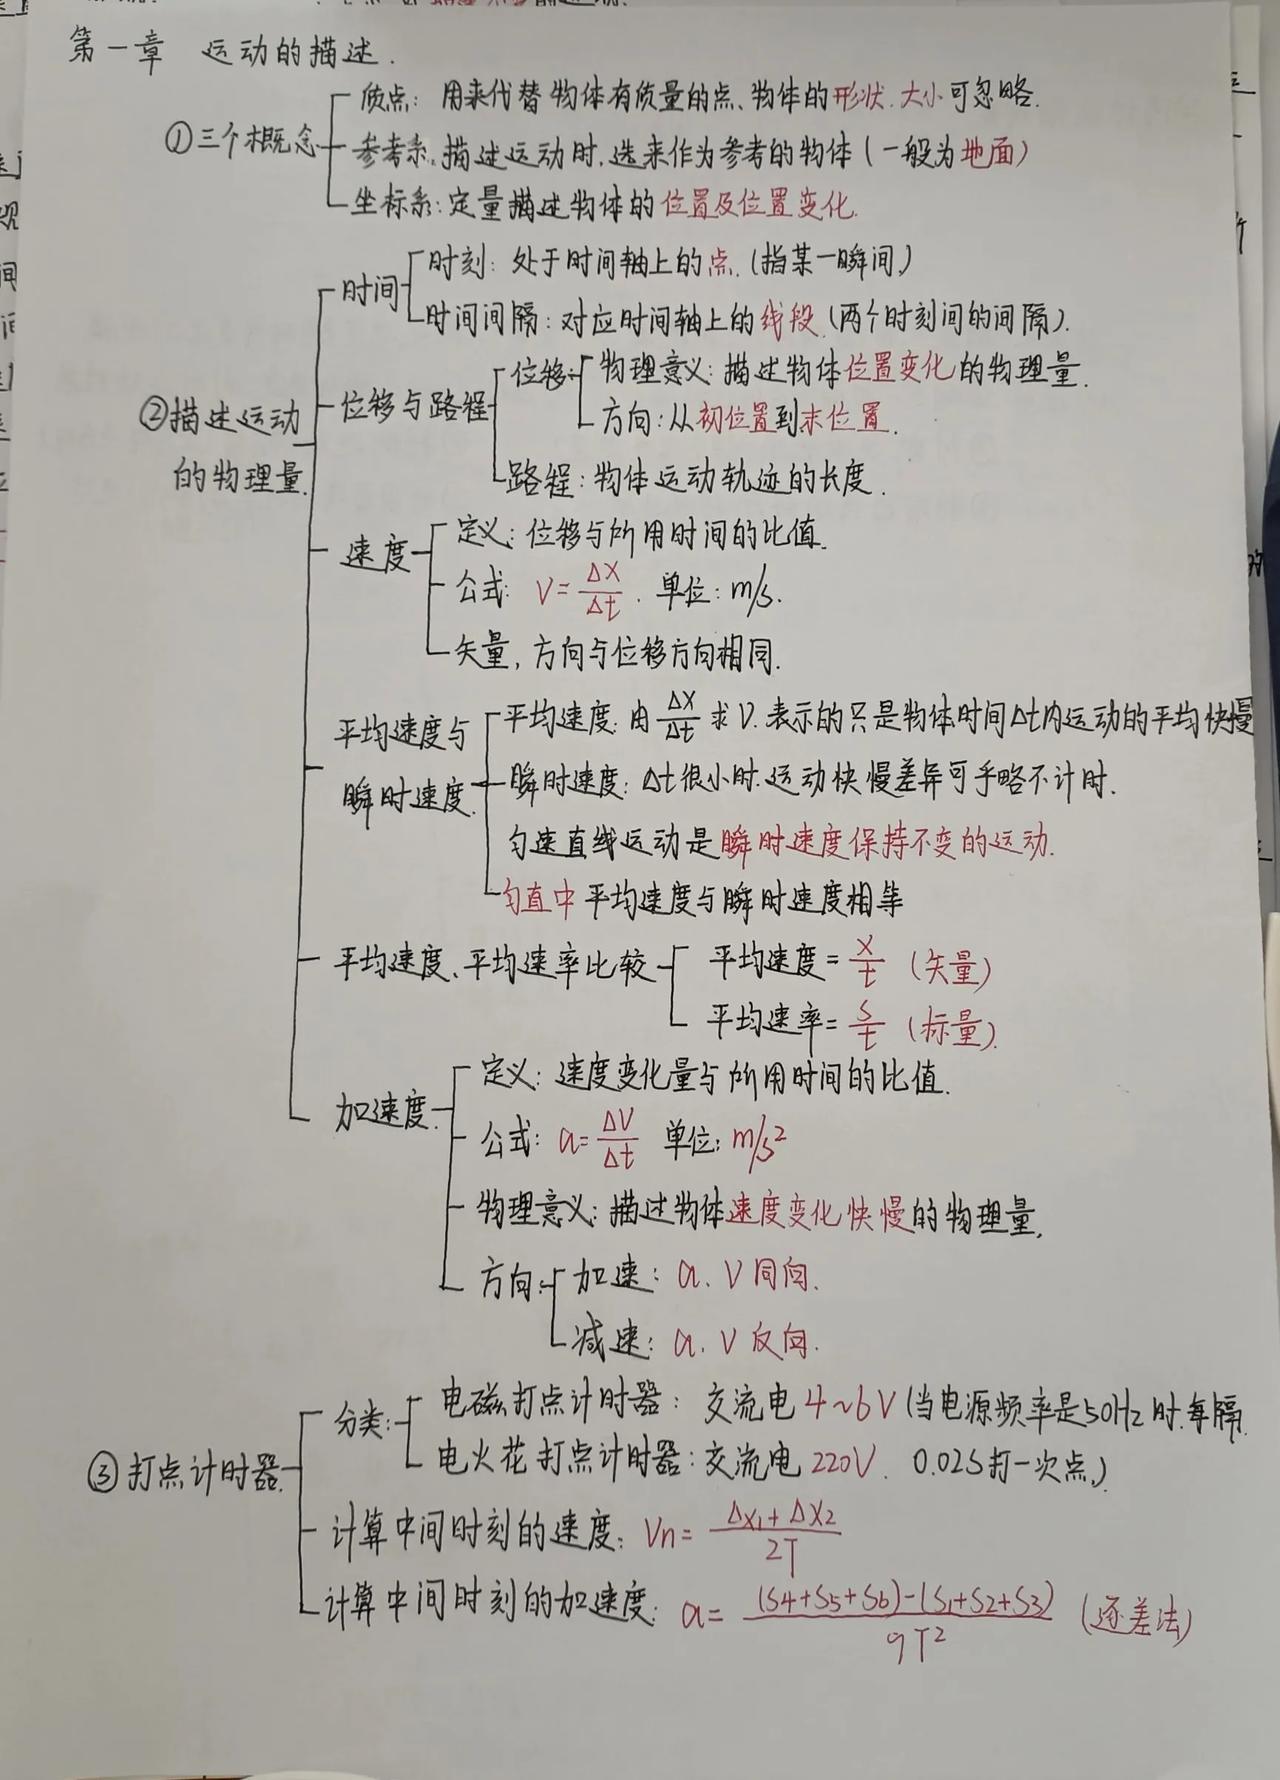 第一章 运动的描述.
①三个概念
质点: 用来代替物体有质量的点、物体的形状.大小可忽略.
参考系.描述运动时.选来作为参考的物体(一般为地面)
坐标系:定量描述物体的位置及位置变化.
②描述运动
的物理量.
时间
时刻: 处于时间轴上的点.(指某一瞬间,)
时间间隔: 对应时间轴上的线段.(两个时刻间的间隔).
位移与路程
位移:
物理意义:描述物体位置变化的物理量.
方向:从初位置到末位置.
路程:物体运动轨迹的长度.
速度
定义: 位移与所用时间的比值.
公式: V=ΔX/Δt. 单位: m/s.
矢量, 方向与位移方向相同.
平均速度与
瞬时速度.
平均速度: 由ΔX/Δt求V.表示的只是物体时间Δt内运动的平均快慢
瞬时速度: Δt很小时.运动快慢差异可乎略不计时.
匀速直线运动是瞬时速度保持不变的运动.
匀直中平均速度与瞬时速度相等
平均速度、平均速率比较
平均速度=X/t (矢量)
平均速率=S/t (标量).
加速度.
定义: 速度变化量与所用时间的比值.
公式: a=ΔV/Δt 单位: m/s²
物理意义: 描述物体速度变化快慢的物理量.
方向:
加速: a. V同向.
减速: a. V反向.
③打点计时器.
分类:
电磁打点计时器: 交流电4~6V(当电源频率是50Hz时.每隔
电火花打点计时器:交流电220V. 0.02S打一次点,)
计算中间时刻的速度: Vn=(ΔX1+ΔX2)/2T
计算中间时刻的加速度: a=((S4+S5+S6)-(S1+S2+S3))/9T² (逐差法)